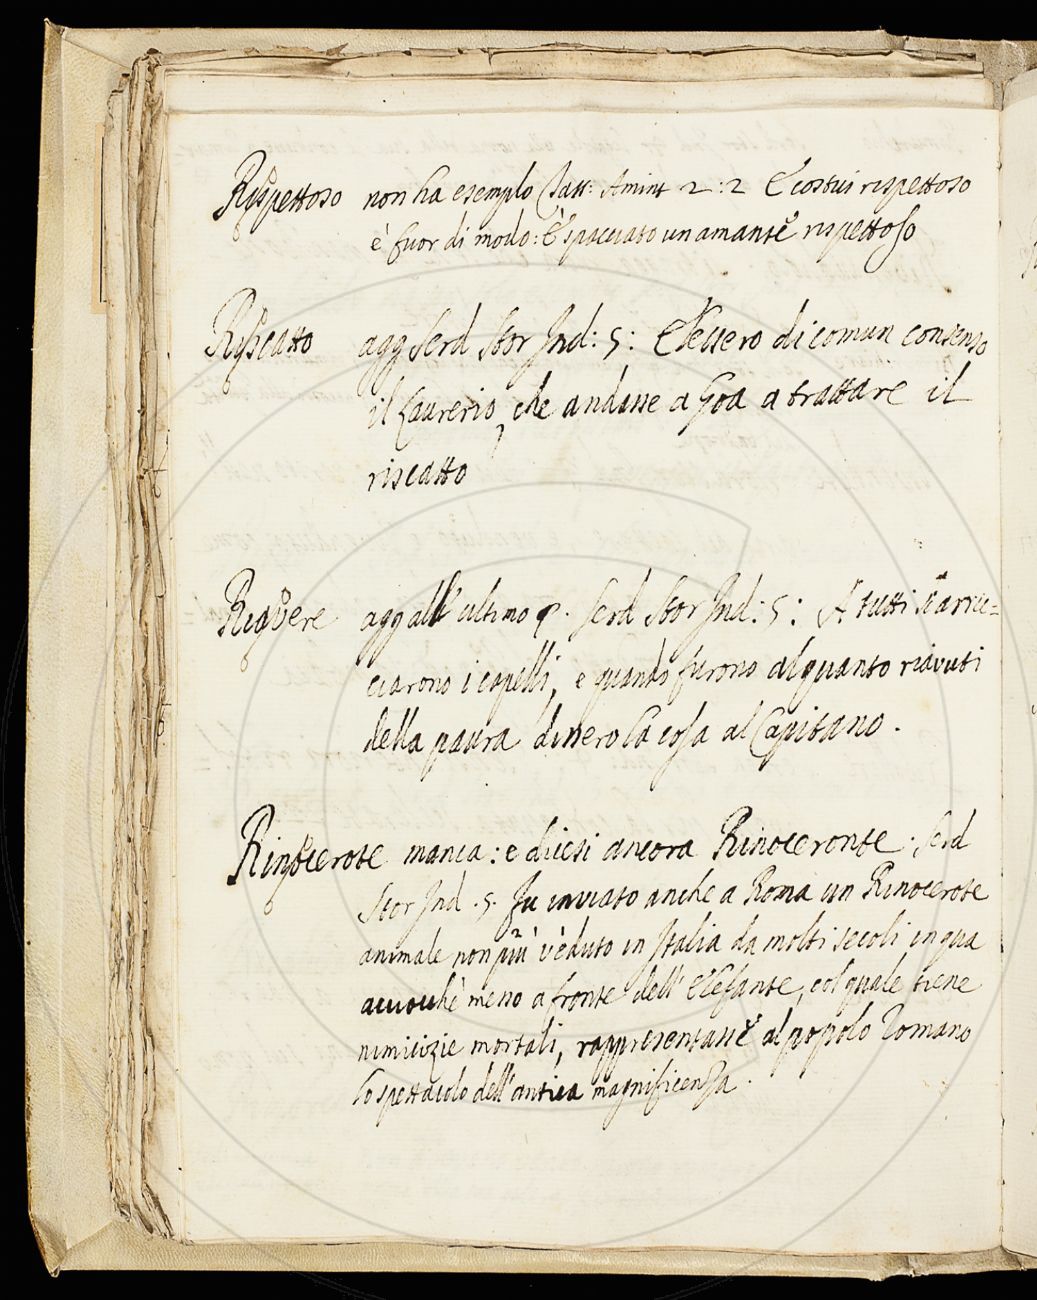 Rispettoso non ha esempio Tass: Amint 2:2 E costui rispettoso
è fuor di modo: E' spacciato un amante rispettoso
Riscatto agg Serd Stor Ind: 5: Elessero di comun consenso
il Laurerio, che andasse a Goa a trattare il
riscatto
Riavere agg all' ultimo §. Serd Stor Ind: 5: A tutti si arric=
ciarono i capelli, e quando furono alquanto riavuti
della paura dissero la cosa al Capitano.
Rinocerote manca: e dicesi ancora Rinoceronte. Serd
Stor Ind. 5. Fu inviato anche a Roma un Rinocerote
animale non più veduto in Italia da molti secoli in qua
acciochè meno a fronte dell' Elefante, col quale tiene
nimicizie mortali, rappresentasse al popolo Romano
lo spettacolo dell' antica magnificenza.